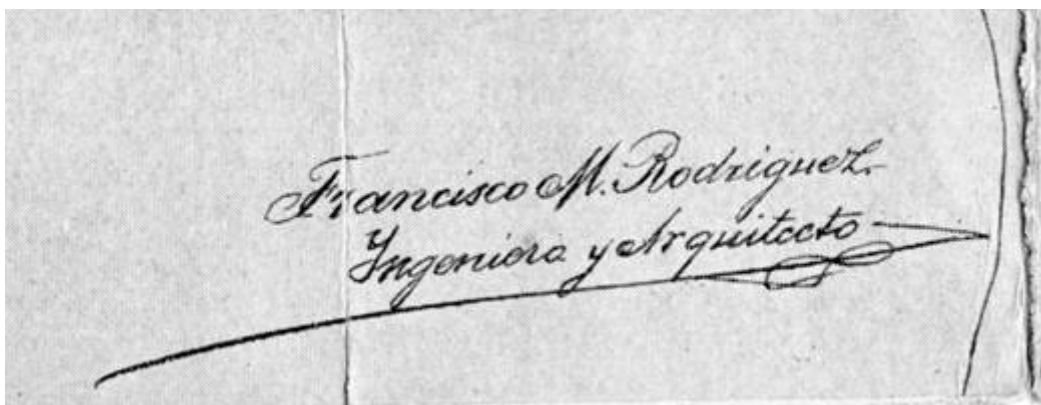 Francisco M. Rodriguez.
Ingeniero y Arquitecto